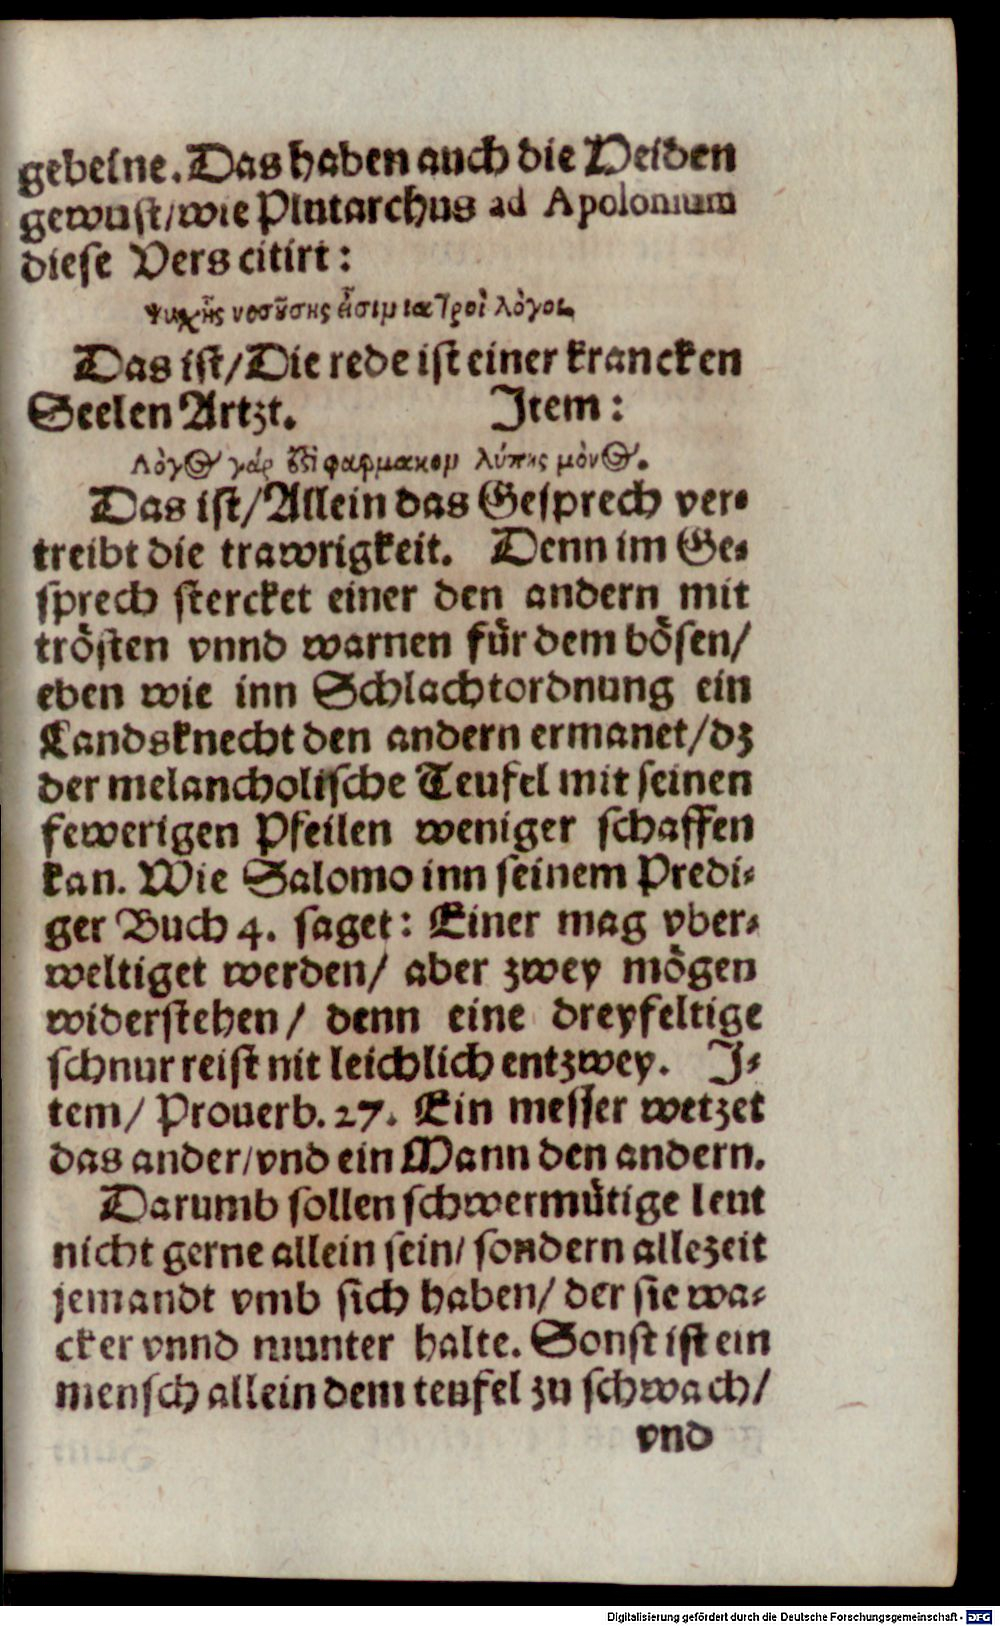 gebeine. Das haben auch die Heiden
gewust/ wie Plutarchus ad Apolonium
diese Vers citirt:
ψυχῆς νοσȣ̃σης ἐισιμ ιατροὶ λόγοι.
Das ist/ Die rede ist einer krancken
Seelen Artzt. Item:
Λόγ@ γάρ ἐϛὶ φαρμακομ λύπης μόν@.
Das ist/ Allein das Gesprech ver-
treibt die trawrigkeit. Denn im Ge-
sprech stercket einer den andern mit
trösten vnnd warnen für dem bösen/
eben wie inn Schlachtordnung ein
Landsknecht den andern ermanet/ dz
der melancholische Teufel mit seinen
fewerigen Pfeilen weniger schaffen
kan. Wie Salomo inn seinem Predi-
ger Buch 4. saget: Einer mag vber-
weltiget werden/ aber zwey mögen
widerstehen/ denn eine dreyfeltige
schnur reist nit leichlich entzwey. I-
tem/ Prouerb. 27. Ein messer wetzet
das ander/ vnd ein Mann den andern.
Darumb sollen schwermütige leut
nicht gerne allein sein/ sondern allezeit
jemandt vmb sich haben/ der sie wa-
cker vnnd munter halte. Sonst ist ein
mensch allein dem teufel zu schwach/
vnd
Digitalisierung gefördert durch die Deutsche Forschungsgemeinschaft - DFG